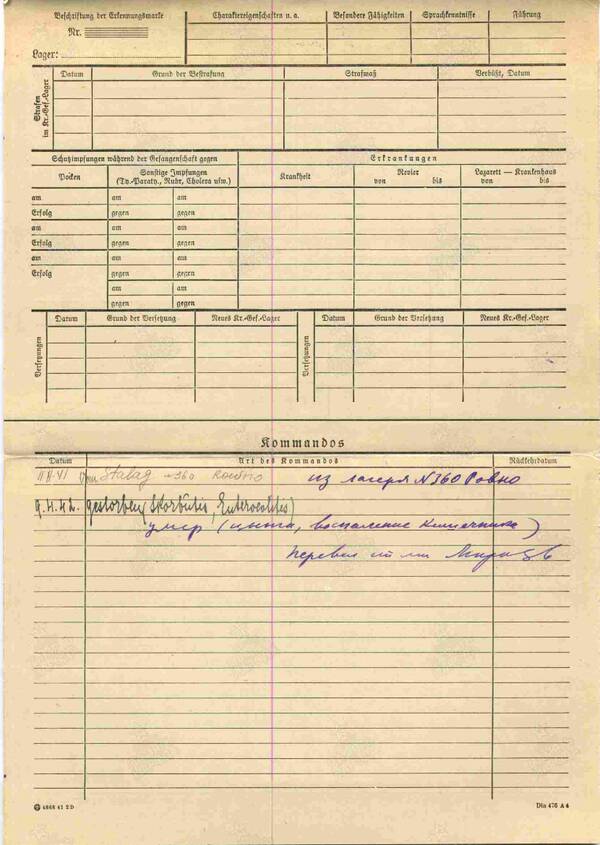 Beschriftung der Erkennungsmarke
Nr.
Lager:
Charaktereigenschaften u. a.
Besondere Fähigkeiten
Sprachkenntnisse
Führung
Strafen im Kr.-Gef.-Lager
Datum
Grund der Bestrafung
Strafmaß
Verbüßt, Datum
Schutzimpfungen während der Gefangenschaft gegen
Erkrankungen
Pocken
Sonstige Impfungen
(Ty.-Paraty., Ruhr, Cholera usw.)
Krankheit
Revier
von bis
Lazarett — Krankenhaus
von bis
am am am
Erfolg gegen gegen
am am am
Erfolg gegen gegen
am am am
Erfolg gegen gegen
am am
gegen gegen
Versetzungen
Datum
Grund der Versetzung
Neues Kr.-Gef.-Lager
Versetzungen
Datum
Grund der Versetzung
Neues Kr.-Gef.-Lager
Kommandos
Datum
Art des Kommandos
Rückkehrdatum
Stalag 360 Rowno из лагеря N 360 Ровно
9.4.42. gestorben (Skorbutis, Enterocolitis)
умер (цинга, воспаление кишечника)
перевел
4868 41 2 D
Din 476 A 4